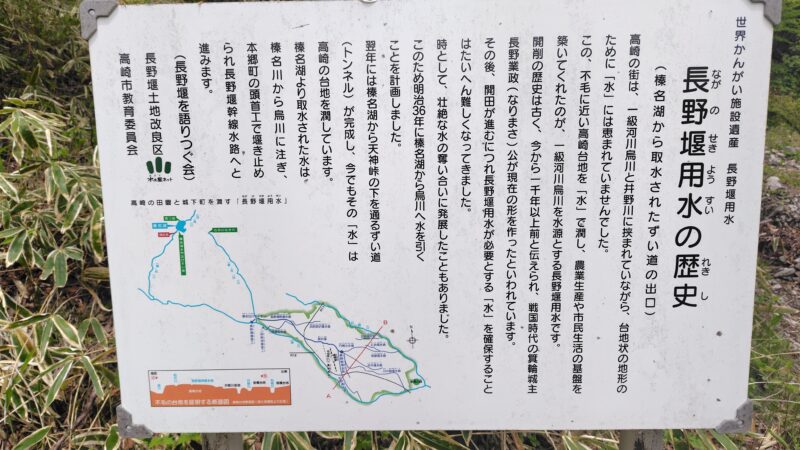 世界かんがい施設遺産　長野堰用水
長野堰用水の歴史
ながのせきようすい
れきし
（榛名湖から取水されたずい道の出口）
高崎の街は、一級河川烏川と井野川に挟まれていながら、台地状の地形の
ために「水」には恵まれていませんでした。
この、不毛に近い高崎台地を「水」で潤し、農業生産や市民生活の基盤を
築いてくれたのが、一級河川烏川を水源とする長野堰用水です。
開削の歴史は古く、今から一千年以上前と伝えられ、戦国時代の箕輪城主
長野業政（なりまさ）公が現在の形を作ったといわれています。
その後、開田が進むにつれ長野堰用水が必要とする「水」を確保すること
はたいへん難しくなってきました。
時として、壮絶な水の奪い合いに発展したこともありました。
このため明治36年に榛名湖から烏川へ水を引く
ことを計画しました。
翌年には榛名湖から天神峠の下を通るずい道
（トンネル）が完成し、今でもその「水」は
高崎の台地を潤しています。
榛名湖より取水された水は
榛名川から烏川に注ぎ、
本郷町の頭首工で堰き止め
られ長野堰幹線水路へと
進みます。
（長野堰を語りつぐ会）
長野堰土地改良区
水土里ネット
高崎市教育委員会
高崎の田園と城下町を潤す「長野堰用水」
不毛の台地を証明する断面図